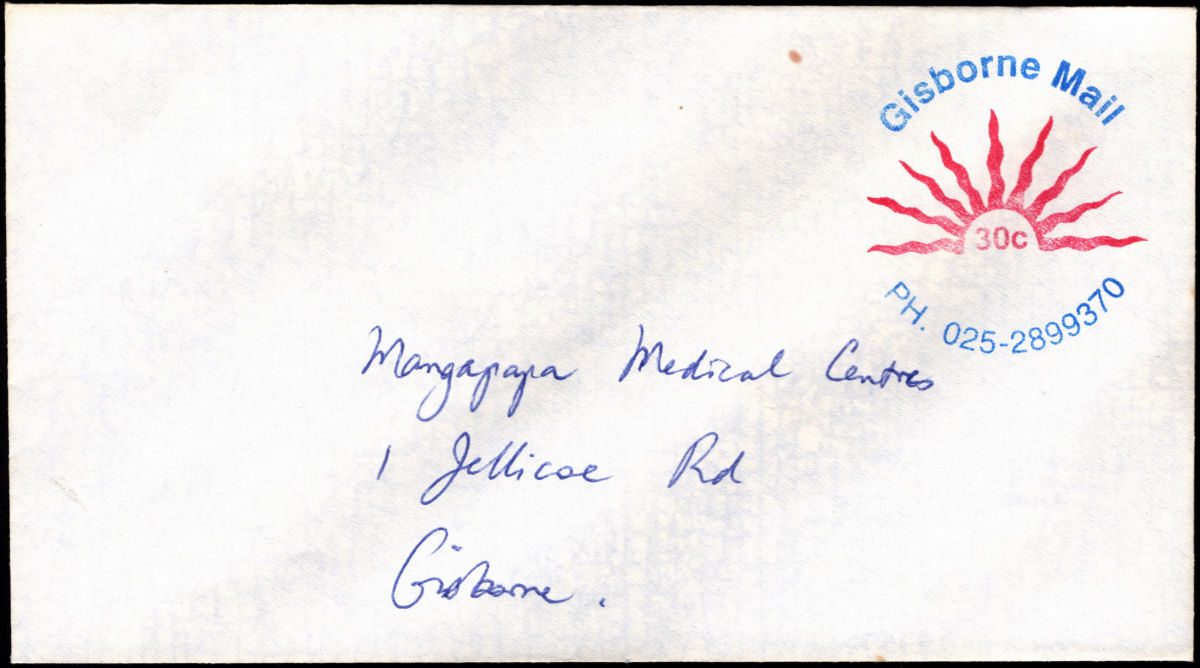 Gisborne Mail
30c
PH. 025-2899370
Mangapapa Medical Centres
1 Jellicoe Rd
Gisborne.